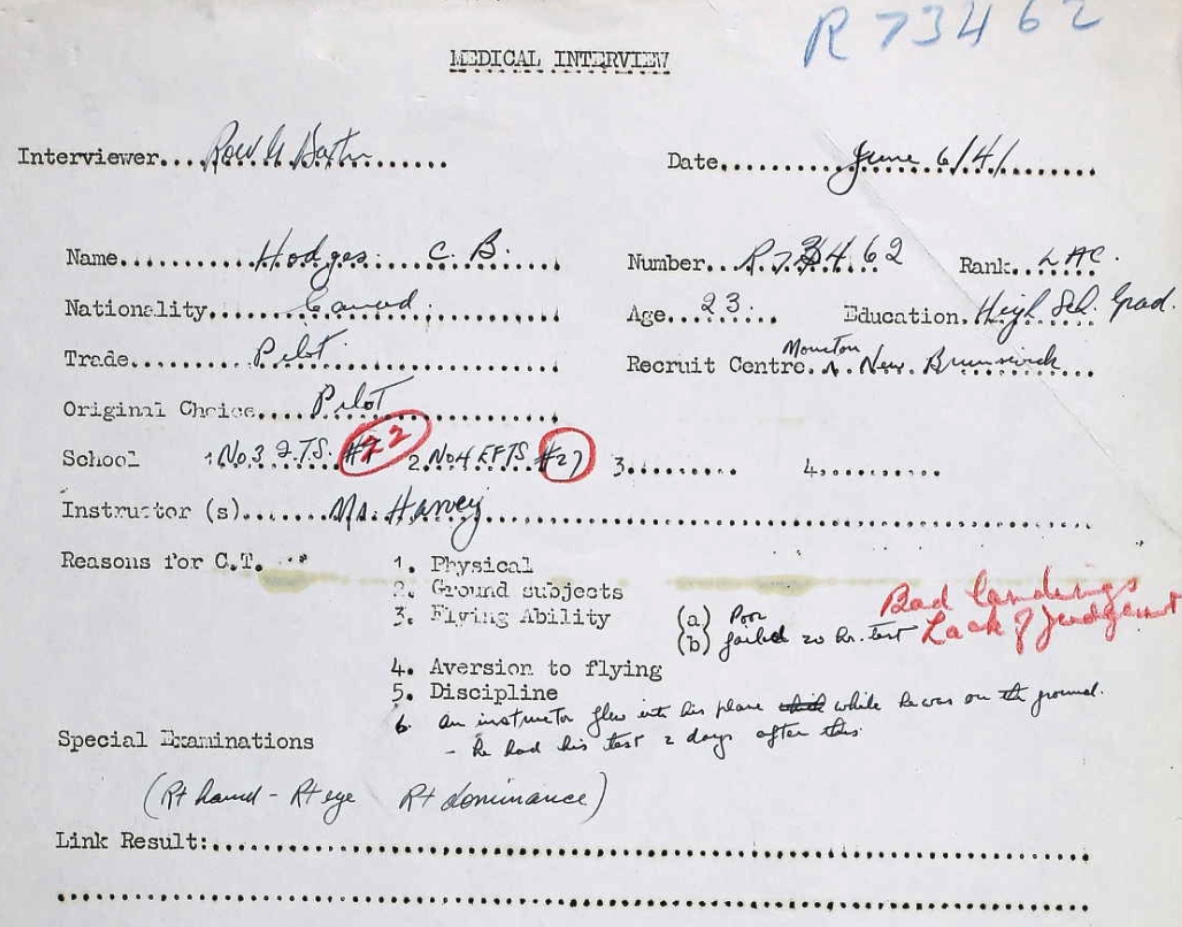 R 73462
MEDICAL INTERVIEW
Interviewer.... .......
Date.......... June 6/41..........
Name............ Hodges. C. B.
Number.. R.73462 Rank.. LAC.
Nationality........ Canad.
Age.... 23. .... Education. High Sch. Grad.
Trade.......... Pilot
Moncton
Recruit Centre.. ^. New. Brunswick....
Original Choice.... Pilot
School 1.No 3 I.T.S. #22 2.No 4 EFTS. #27 3.......... 4............
Instructor (s)....... Mr. Harvey
Reasons for C.T. ...
1. Physical
2. Ground subjects
3. Flying Ability (a) Poor
(b) failed 20 hr. test
Bad landings
Lack of judgement
4. Aversion to flying
5. Discipline
6. an instructor flew into his plane while he was on the ground.
- he had his test 2 days after this.
Special Examinations
(Rt hand - Rt eye Rt dominance)
Link Result:..........